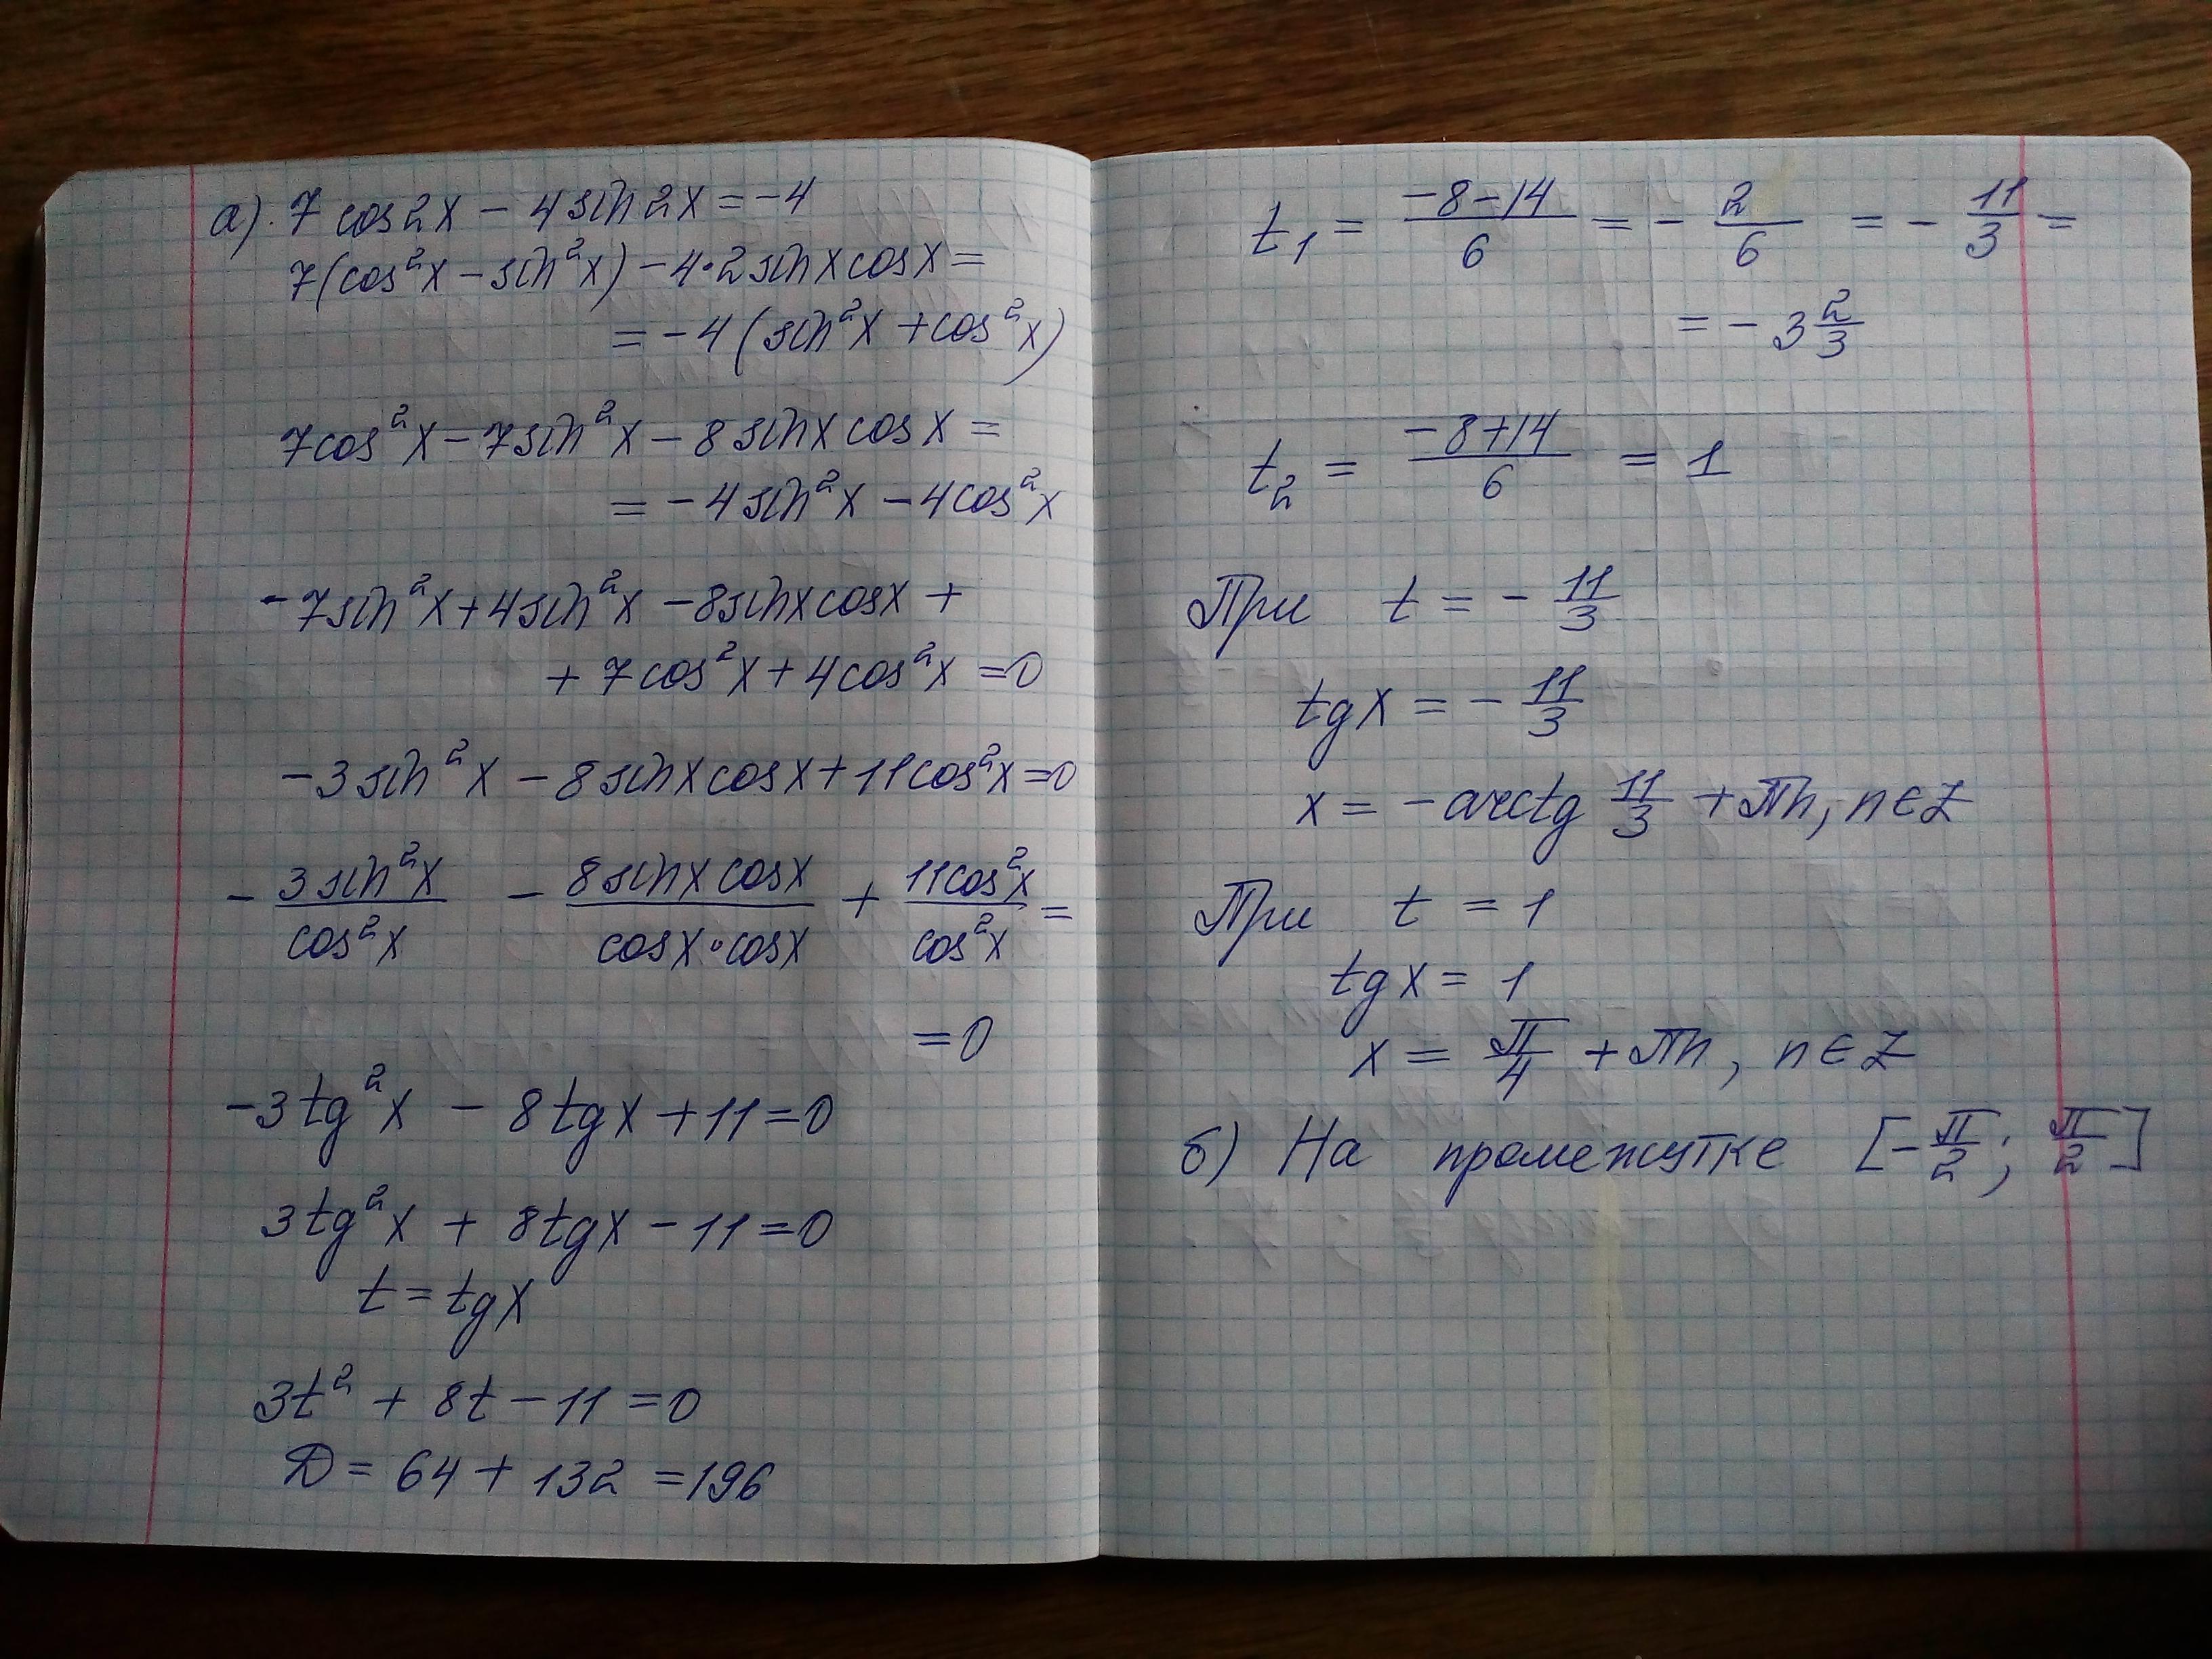 а). 7 cos2x - 4sin2x = -4
7(cos²x - sin²x) - 4•2sinxcosx =
= -4(sin²x + cos²x)
7cos²x - 7sin²x - 8sinxcosx =
= -4sin²x - 4cos²x
-7sin²x + 4sin²x - 8sinxcosx +
+ 7cos²x + 4cos²x = 0
-3sin²x - 8sinxcosx + 11cos²x = 0
- 3sin²x/cos²x - 8sinxcosx/cosx•cosx + 11cos²x/cos²x =
= 0
-3tg²x - 8tgx + 11 = 0
3tg²x + 8tgx - 11 = 0
t = tgx
3t² + 8t - 11 = 0
D = 64 + 132 = 196
t₁ = -8-14/6 = - 2/6 = - 11/3 =
= - 3 2/3
t₂ = -8+14/6 = 1
При t = - 11/3
tgx = - 11/3
x = -arctg 11/3 + πn, n∈Z
При t = 1
tgx = 1
x = π/4 + πn, n∈Z
б) На промежутке [-π/2; π/2]